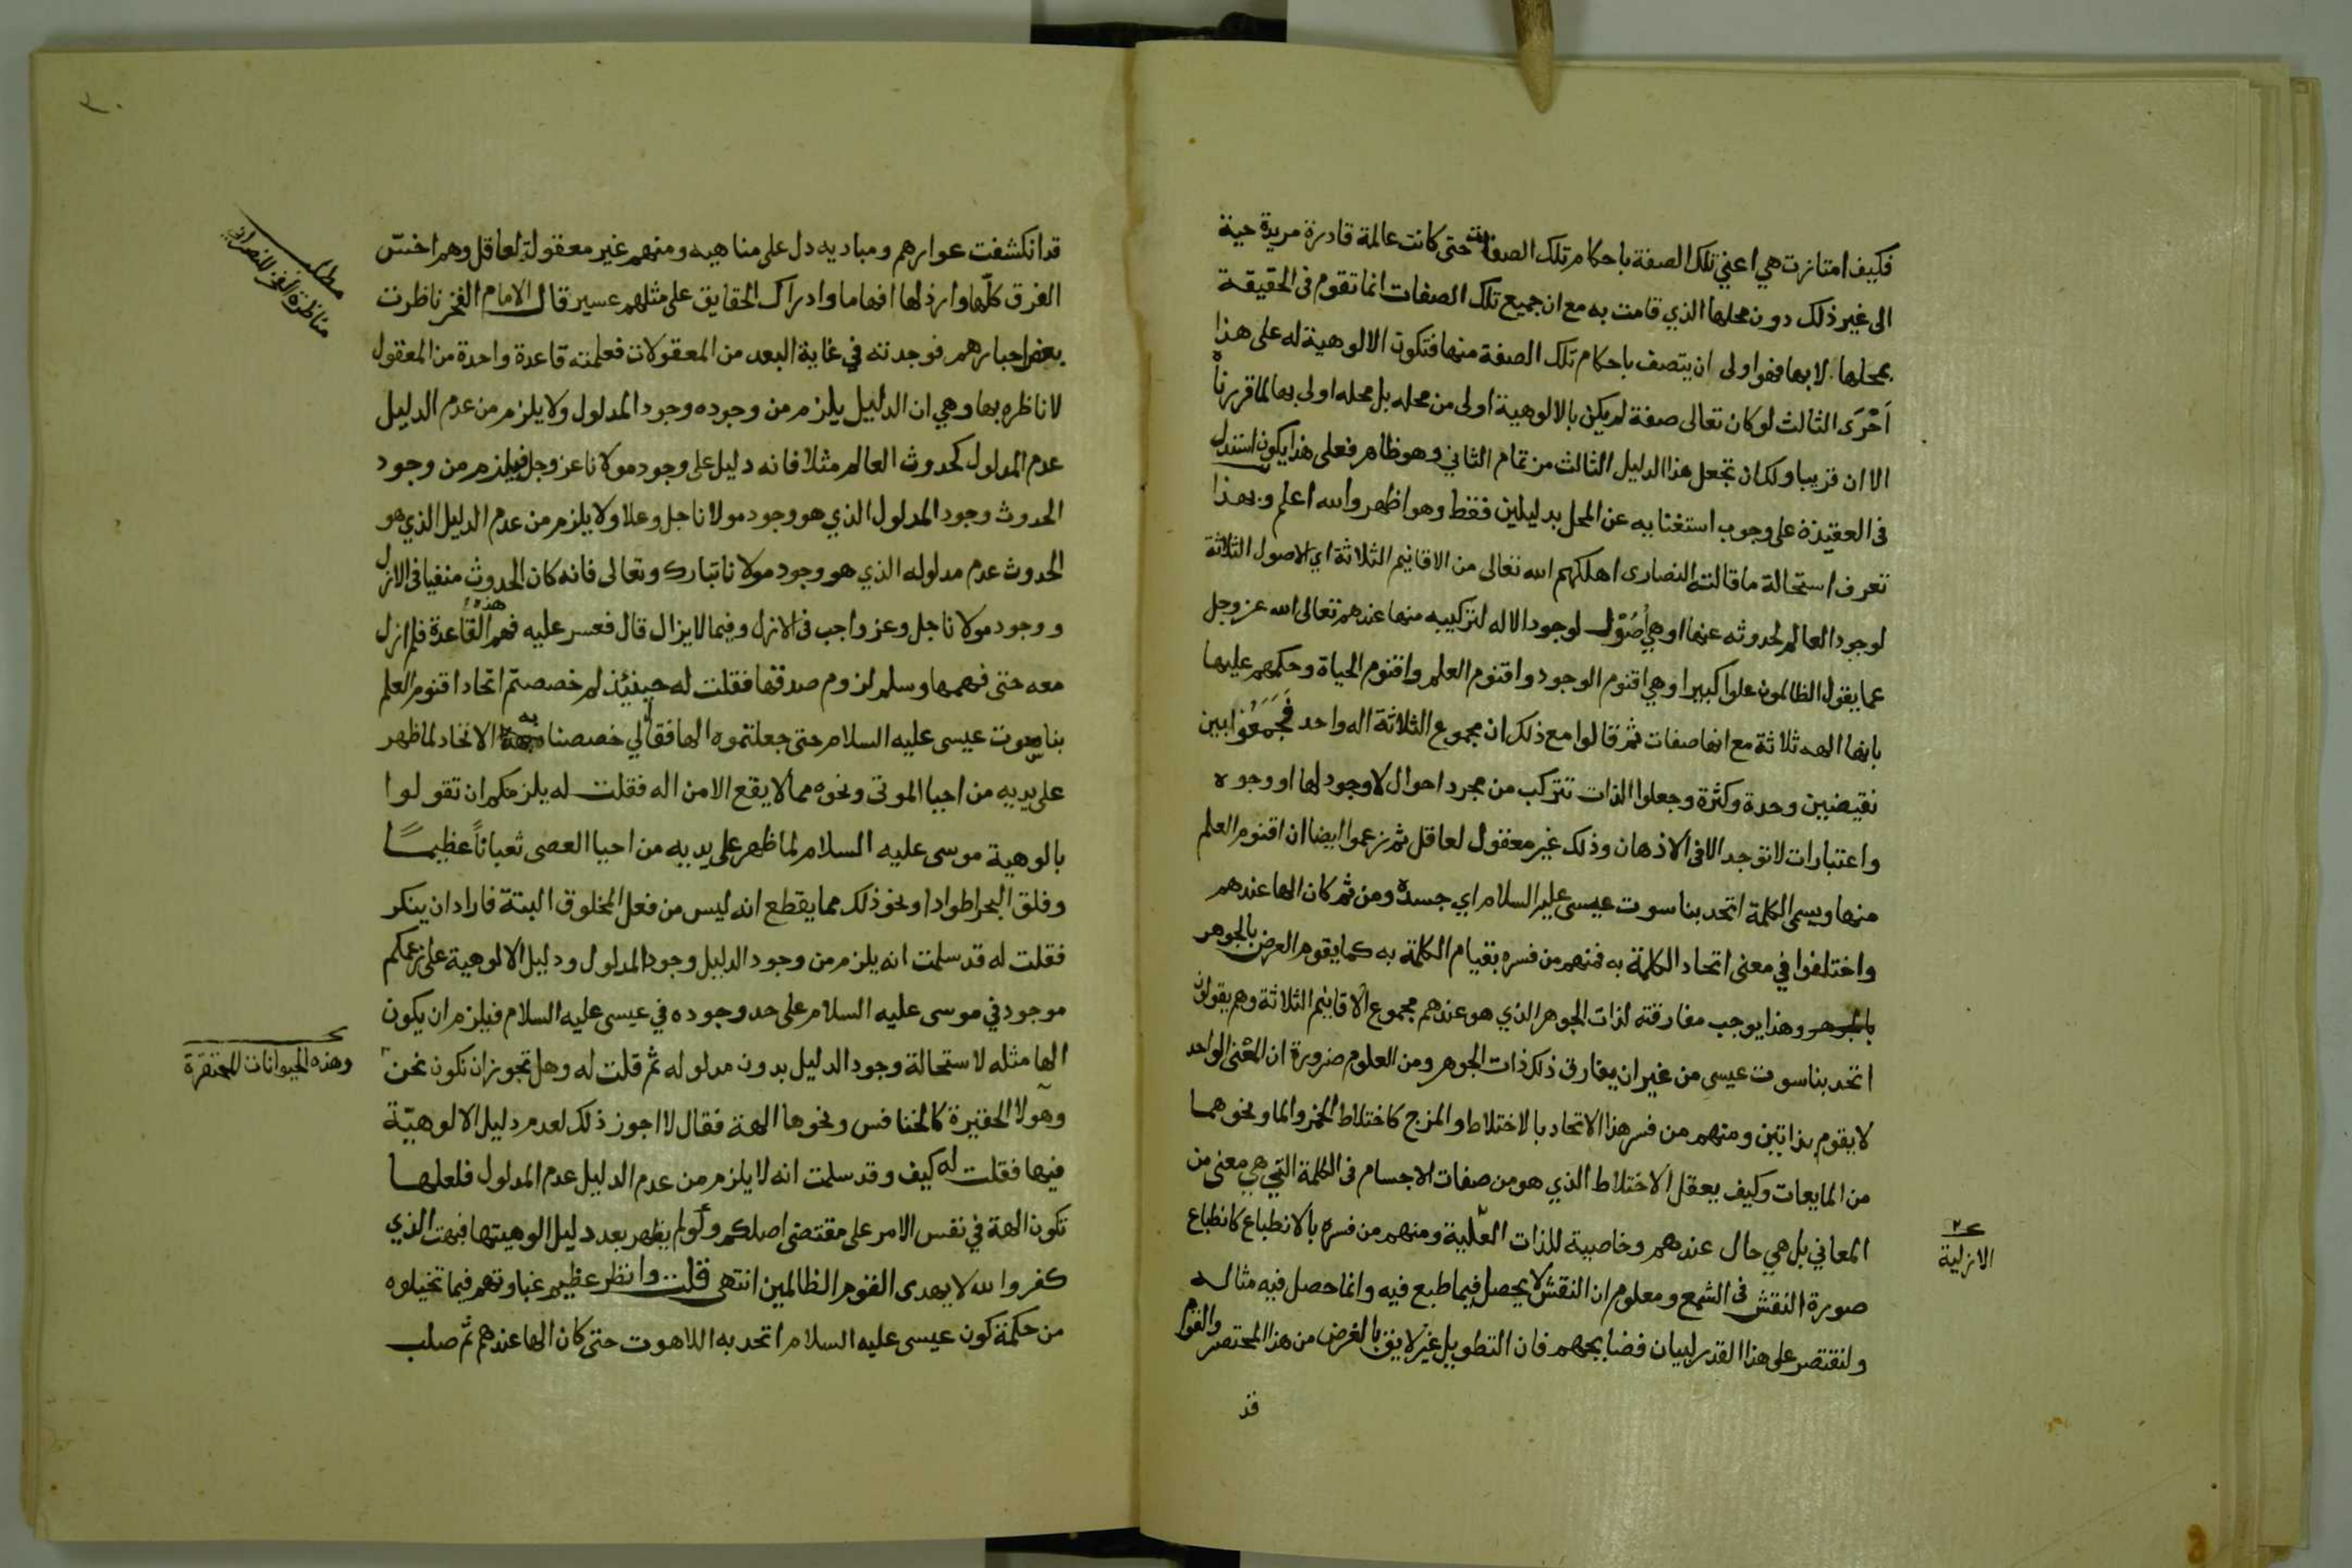 فكيف امتازت هي اعني تلك الصفة باحكام تلك الصفات حتى كانت عالمة قادرة مريدة حية
الى غير ذلك دون محلها الذي قامت به مع ان جميع تلك الصفات انما تقوم فى الحقيقة
بمحلها لا بها فهوا ولى ان يتصف باحكام تلك الصفة منها فتكون الالوهية له على هذا
اَحْرَى الثالث لوكان تعالى صفة لم يكن بالالوهية اولى من محله بل محله اولى بها لما قررناه
الا ان قريبا ولك ان تجعل هذا الدليل الثالث من تمام الثاني وهو ظاهر فعلى هذا يكون استدل
فى العقيدة على وجوب استغنايه عن المحل بدليلين فقط وهو اظهر والله اعلم وبهذا
تعرف استحالة ما قالته النصارى اهلكهم الله تعالى من الاقانيم الثلاثة اي الاصول الثلاثة
لوجود العالم لحدوثه عنها اوهي اُصُوْل لوجود الاله لتركيبه منها عندهم تعالى الله عز وجل
عما يقول الظالمون علوا كبيرا وهي اقنوم الوجود واقنوم العلم واقنوم الحياة وحكمهم عليها
بانها الهه ثلاثة مع انها صفات ثم قالوا مع ذلك ان مجموع الثلاثة اله واحد فَجَمَعُوا بين
نقيضين وحدة وكثرة وجعلوا الذات تتركب من مجرد احوال لا وجود لها او وجوه
واعتبارات لا توجد الا فى الاذهان وذلك غير معقول لعاقل ثم زعموا ايضا ان اقنوم العلم
منها ويسمى الكلمة اتحد بناسوت عيسى عليه السلام اي جسده ومن ثم كان الها عندهم
واختلفوا في معنى اتحاد الكلمة به فمنهم من فسره بقيام الكلمة به كما يقوم العرض بالجوهر
بالجوهر وهذا يوجب مفارقته لذات الجوهر الذي هو عندهم مجموع الاقانيم الثلاثة وهم يقولون
اتحد بناسوت عيسى من غير ان يفارق ذلك ذات الجوهر ومن العلوم ضرورة ان المعْنى الواحد
لا يقوم بذاتين ومنهم من فسر هذا الاتحاد بالاختلاط والمزج كاختلاط الخمر والما ونحوهما
من المايعات وكيف يعقل الاختلاط الذي هو من صفات الاجسام فى الكلمة التي هي معنى من
المعاني بل هي حال عندهم وخاصية للذات العلية ومنهم من فسره بالانطباع كانطباع
صورة النقش فى الشمع ومعلوم ان النقش لا يحصل فيما طبع فيه وانما حصل فيه مثاله
ولنقتصر على هذا القدر لبيان فضايحهم فان التطويل غير لايق بالغرض من هذا المختصر والقوم
قد
٢
الازلية
٣٠
قد انكشفت عوارهم ومباديه دل على مناهيه ومنهم غير معقولة لعاقل وهم اخسّ
الفرق كلّها وارذلها افهاما وادراك الحقايق على مثلهم عسير قال الامام الفخر ناظرت
بعض احبارهم فوجدته في غاية البعد من المعقولات فعلمته قاعدة واحدة من المعقول
لاناظره بها وهي ان الدليل يلزم من وجوده وجود المدلول ولا يلزم من عدم الدليل
عدم المدلول كحدوث العالم مثلا فانه دليل على وجود مولانا عز وجل فيلزم من وجود
الحدوث وجود المدلول الذي هو وجود مولانا جل وعلا ولا يلزم من عدم الدليل الذي هو
الحدوث عدم مدلوله الذي هو وجود مولانا تبارك وتعالى فانه كان الحدوث منفيا فى الازل
ووجود مولانا جل وعز واجب فى الازل وفيما لايزال قال فعسر عليه فهم هذه القاعدة فلم ازل
معه حتى فهمها وسلم لزوم صدقها فقلت له حينئذ لم خصصتم اتحاد اقنوم العلم
بناسوت عيسى عليه السلام حتى جعلتموه الها فقال لي خصصنا به الاتحاد لما ظهر
على يديه من احيا الموتى ونحوه مما لا يقع الا من اله فقلت له يلزمكم ان تقولوا
بالوهية موسى عليه السلام لما ظهر على يديه من احيا العصى ثعباناً عظيمًا
وفلق البحر اطوادا ونحو ذلك مما يقطع انه ليس من فعل المخلوق البتة فاراد ان ينكر
فقلت له قد سلمت انه يلزم من وجود الدليل وجود المدلول ودليل الالوهية على زعمكم
موجود في موسى عليه السلام على حد وجوده في عيسى عليه السلام فيلزم ان يكون
الها مثله لاستحالة وجود الدليل بدون مدلوله ثم قلت له وهل تجوز ان نكون نحن
وهولا الحقيرة كالخنافس ونحوها الهة فقال لا اجوز ذلك لعدم دليل الالوهيّة
فيها فقلت له كيف وقد سلمت انه لا يلزم من عدم الدليل عدم المدلول فلعلها
تكون الهة في نفس الامر على مقتضى اصلكم ولو لم يظهر بعد دليل الوهيتها فبهت الذي
كفر والله لا يهدى القوم الظالمين انتهى قلت وانظر عظيم غباوتهم فيما تخيلوه
من حكمة كون عيسى عليه السلام اتحد به اللاهوت حتى كان الها عندهم ثم صلب
مطلب
مناظرة الفخر للنصراني
وهذه الحيوانات المحتقرة